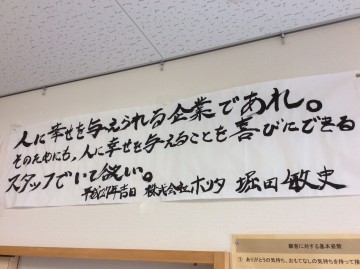 人に幸せを与えられる企業であれ。
そのためにも、人に幸せを与えることを喜びにできる
スタッフでいて欲しい。
平成21年吉日 株式会社ホリタ 堀田敏史
顧客に対する基本姿勢
① ありがとうの気持ち、おもてなしの気持ちを持って接